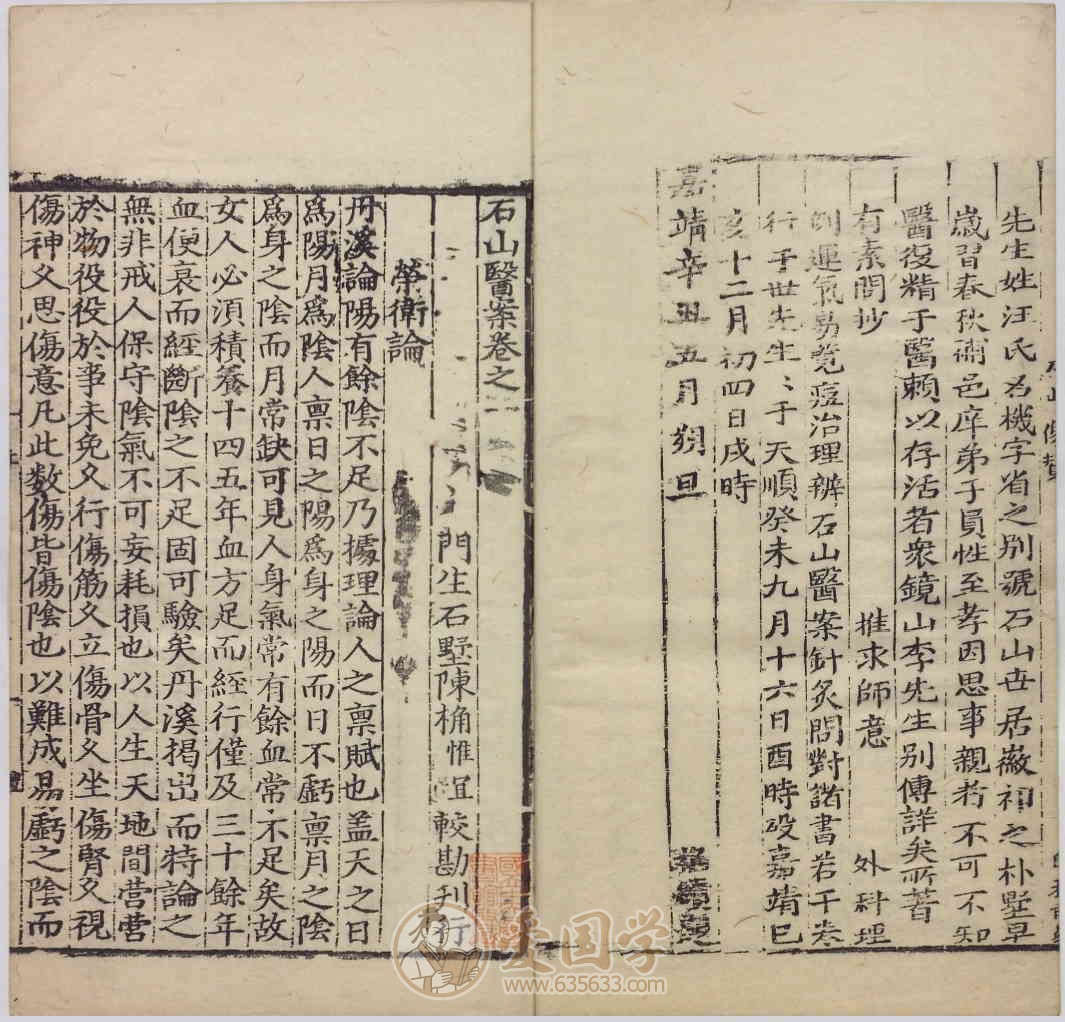 先生姓汪氏名機字省之別號石山世居徽祁之朴墅早
歲習春秋補邑庠弟子員性至孝因思事親者不可不知
醫復精于醫賴以存活者衆鏡山李先生别傳詳矣所著
有素問抄 推求師意 外科理
例運氣易覽痘治理辨石山醫案針灸問對諸書若干卷
行于世先生生于天順癸未九月十六日酉時歿嘉靖己
亥十二月初四日戌時
嘉靖辛丑五月朔旦
石山醫案卷之
門生石墅陳桷惟宜較勘刋行
榮衛論
丹溪論陽有餘陰不足乃據理論人之禀賦也盖天之日
爲陽月爲陰人禀日之陽爲身之陽而日不虧禀月之陰
爲身之陰而月常缺可見人身氣常有餘血常不足矣故
女人必須積養十四五年血方足而經行僅及三十餘年
血便衰而經斷陰之不足固可驗矣丹溪揭出而特論之
無非戒人保守陰氣不可妄耗損也以人生天地間营营
於物役役於事未免久行傷筋久立傷骨久坐傷腎久視
傷神久思傷意凡此数傷皆傷陰也以難成易虧之陰而
爱国学
www.635633.com